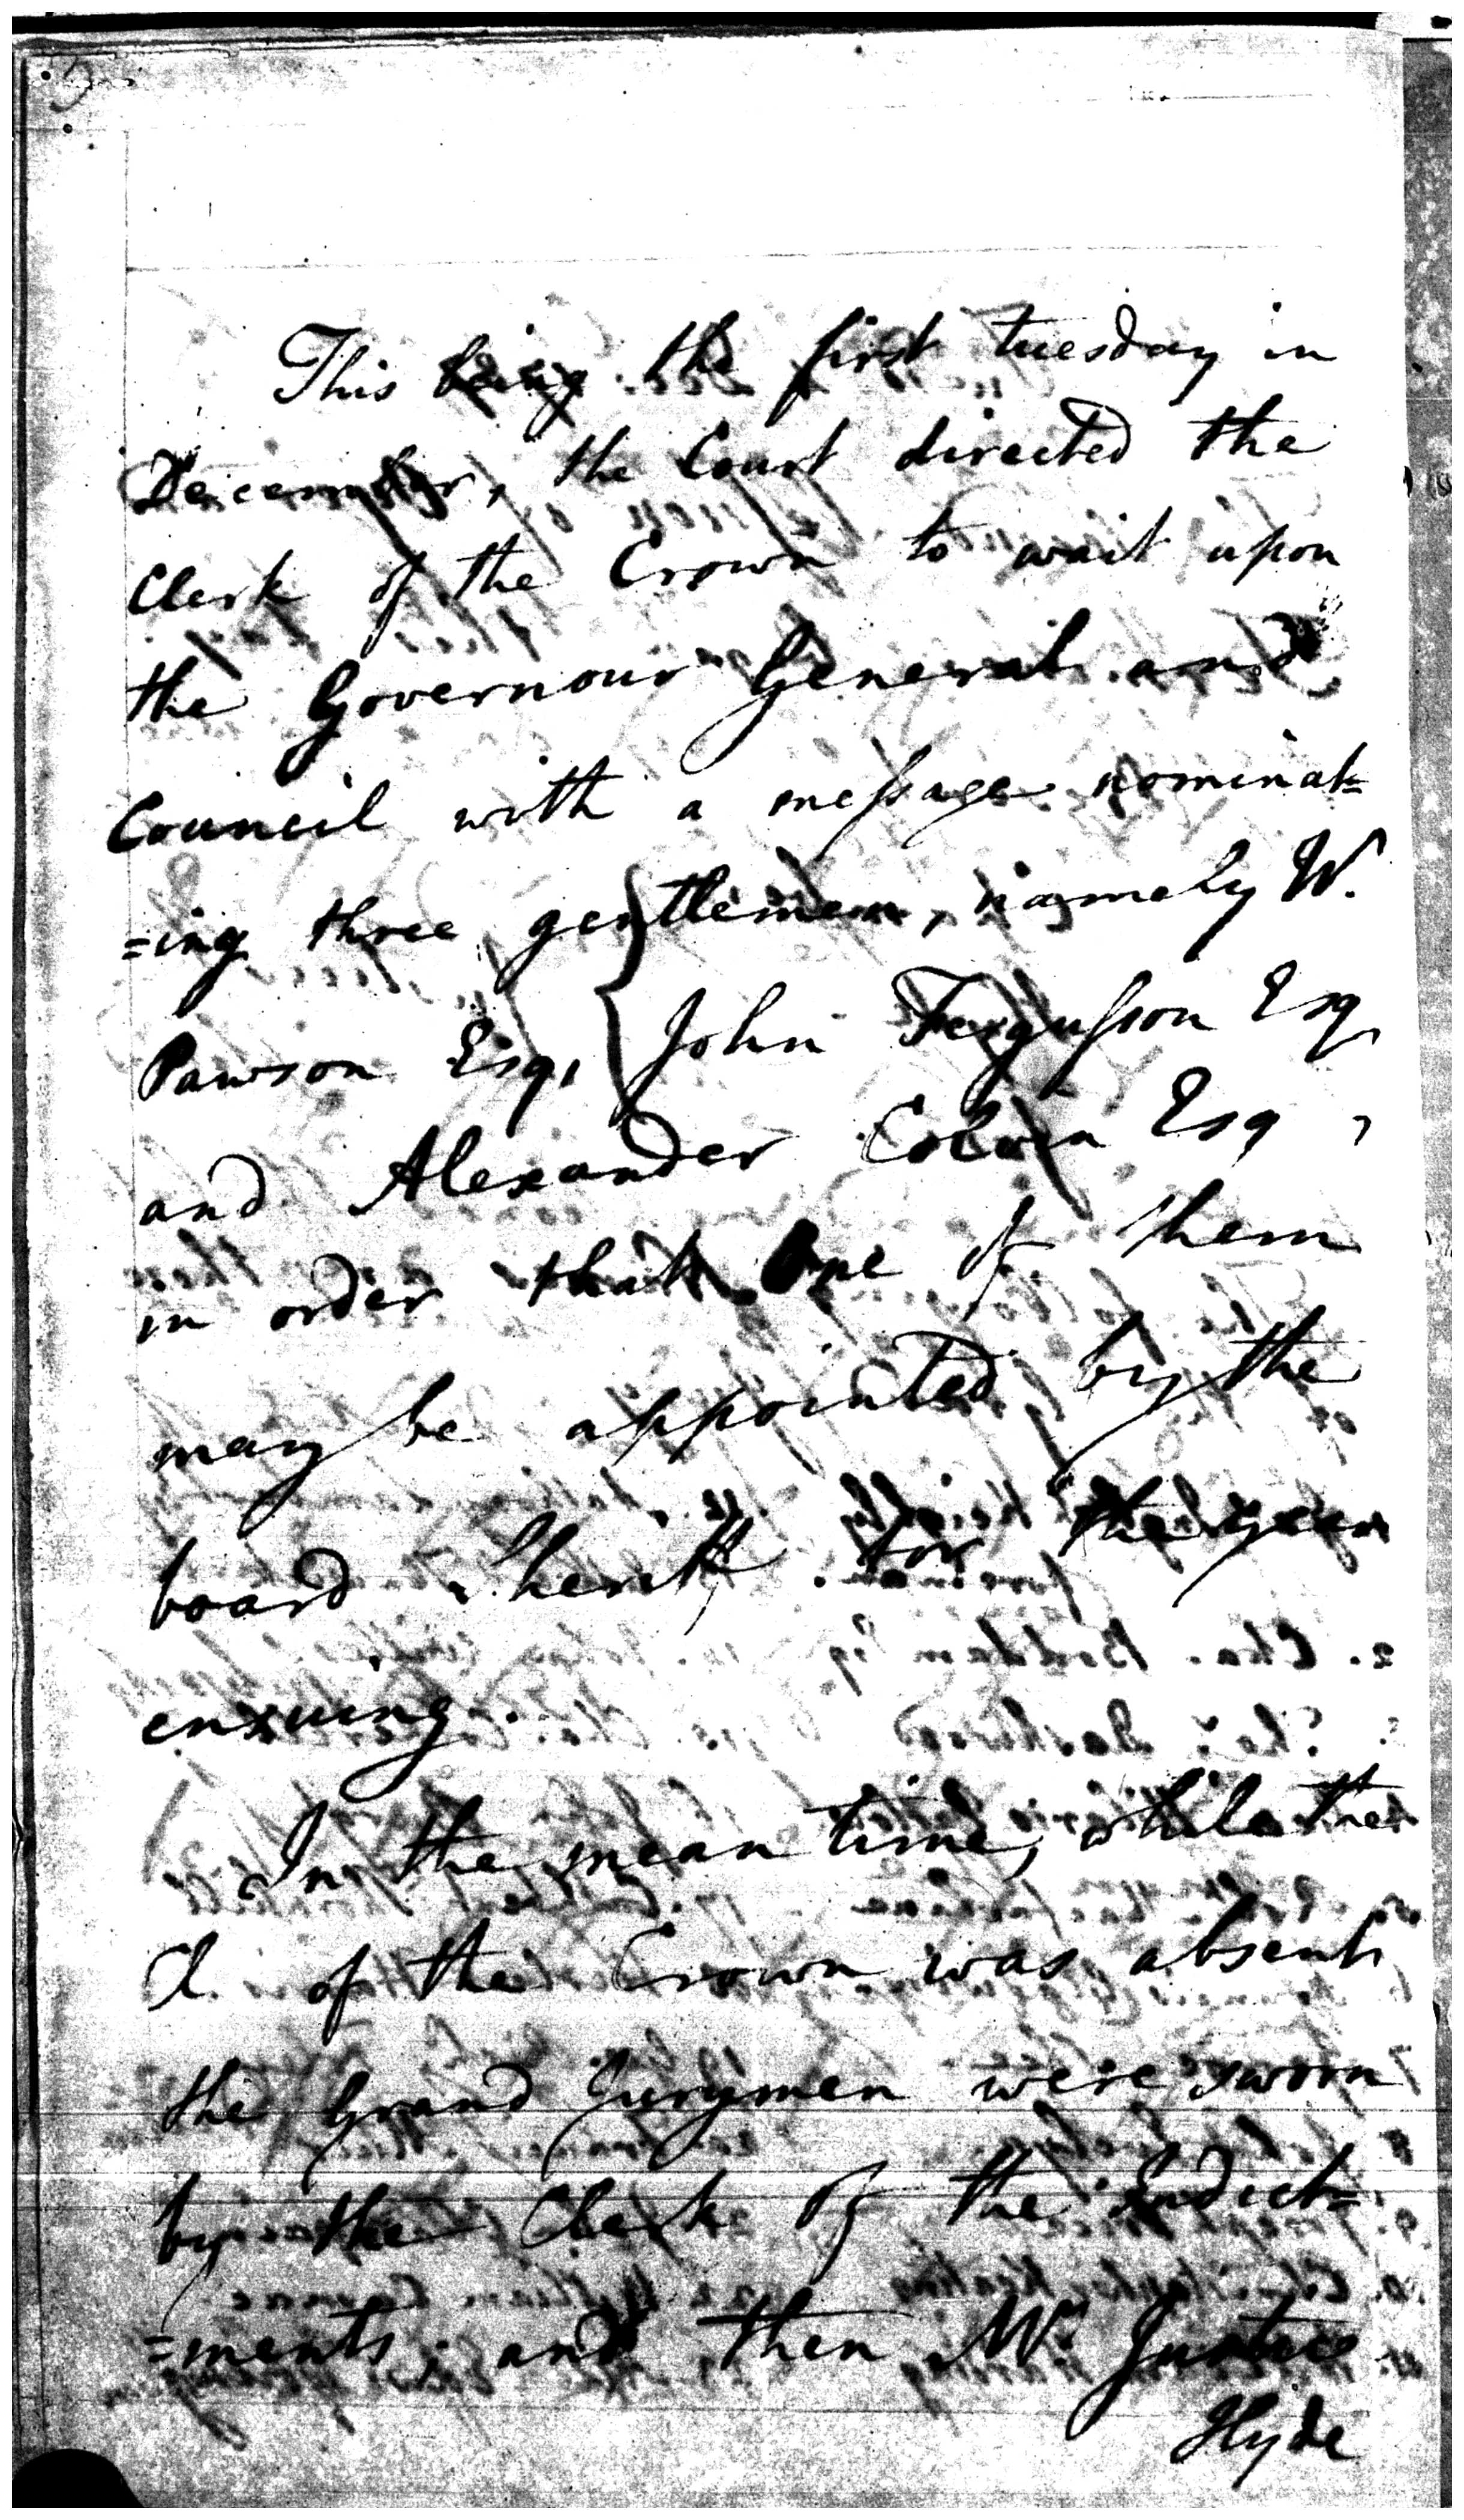 This being the first tuesday in
December, the Court directed the
Clerk of the Crown to wait upon
the Governour General and
Council with a meſsage nominat=
=ing three gentlemen, namely W.
Pawson Esq, John Ferguſson Esq,
and Alexander Colvin Esq,
in order that One of them
may be appointed by the
board Sheriff for the year
ensuing.
In the mean time, while the
Cl. of the Crown was absent
the Grand Jurymen were sworn
by the Clerk of the Indict=
=ments. and then Mr. Justice
Hyde